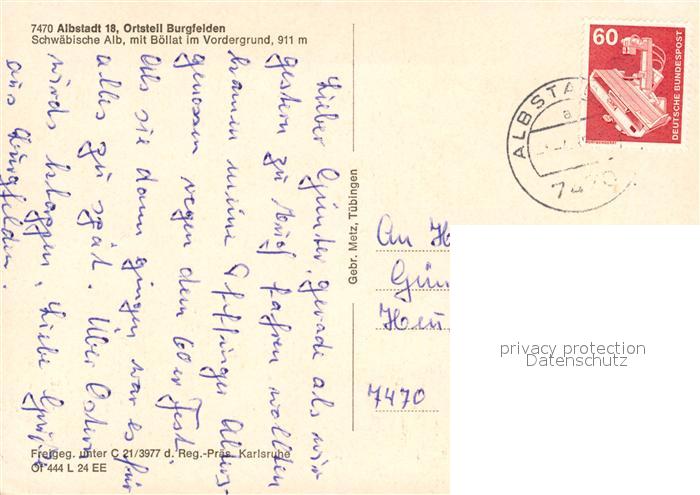 7470 Albstadt 18, Ortsteil Burgfelden
Schwäbische Alb, mit Böllat im Vordergrund, 911 m
Lieber Günter, gerade als wir
gestern zu Euch fahren wollten
kamen meine Pfeffinger Alters-
genossen wegen dem 60er Fest.
Als sie dann gingen war es für
alles zu spät. Über Ostern
wirds klappen. Liebe Grüße
aus Burgfelden.
Freigeg. unter C 21/3977 d. Reg.-Präs. Karlsruhe
Of 444 L 24 EE
Gebr. Metz, Tübingen
60
DEUTSCHE BUNDESPOST
ALBSTA
a
747
An H
Gün
Heu
7470
privacy protection
Datenschutz